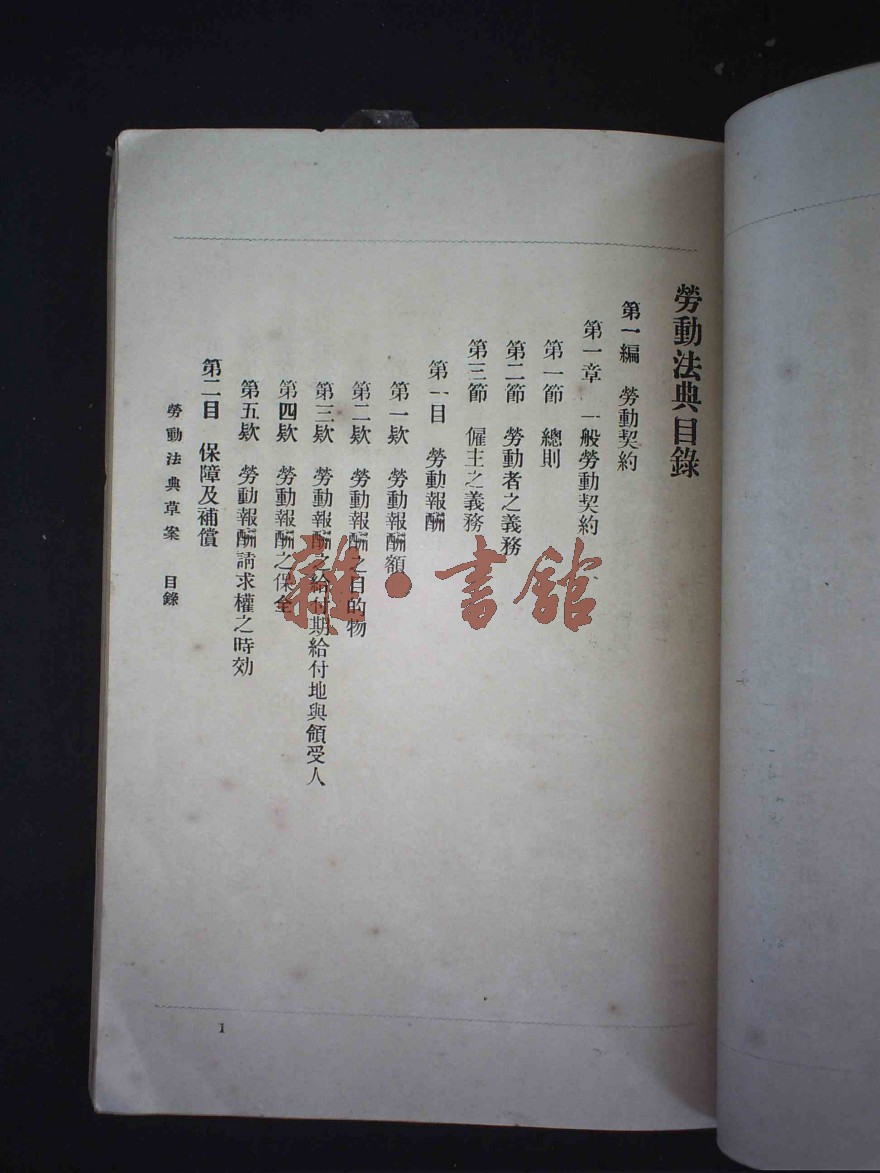 勞動法典目錄
第一編 勞動契約
第一章 一般勞動契約
第一節 總則
第二節 勞動者之義務
第三節 僱主之義務
第一目 勞動報酬
第一欵 勞動報酬額
第二欵 勞動報酬之目的物
第三欵 勞動報酬之給付期給付地與領受人
第四欵 勞動報酬之保全
第五欵 勞動報酬請求權之時効
第二目 保障及補償
勞動法典草案 目錄
1
雜·書館